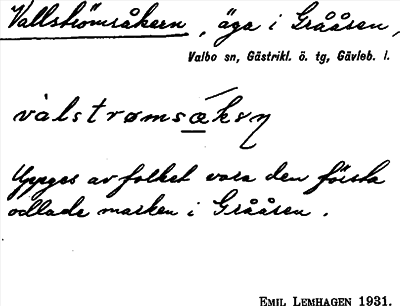 Vallströmsåkern, äga i Grååsen,
Valbo sn, Gästrikl. ö. tg, Gävleb. l.
vàlstrømsǽkəṇ
Uppges av folket vara den första
odlade marken i Grååsen.
EMIL LEMHAGEN 1931.